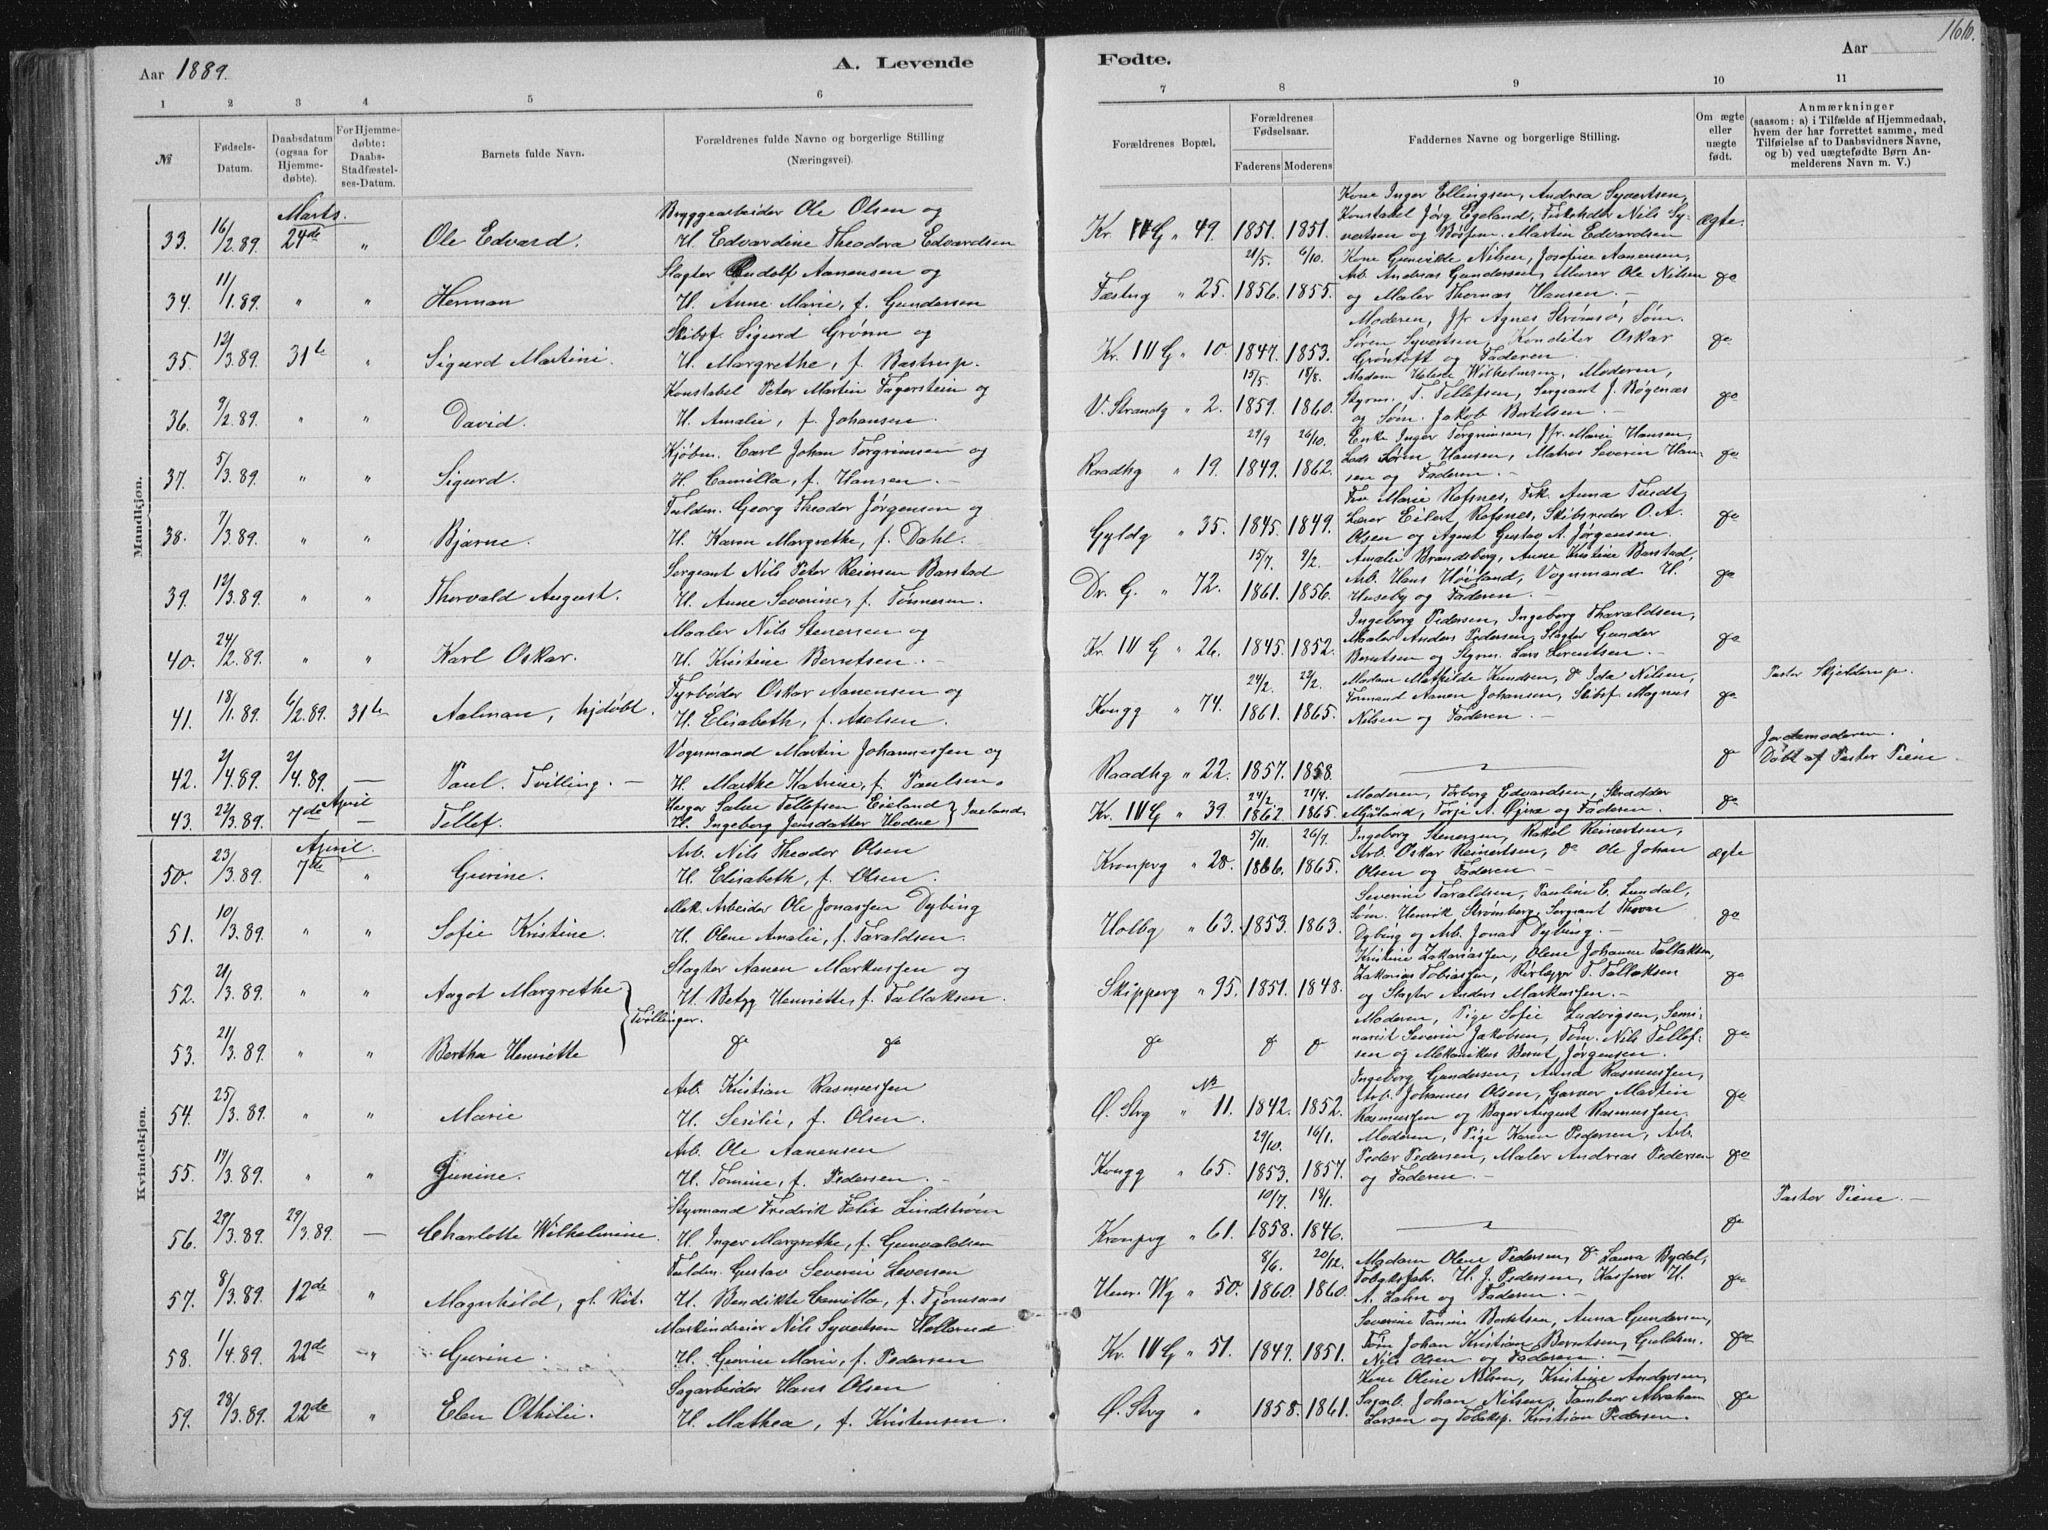 166.
Aar 1889.
A. Levende
Fødte.
Aar
1 2 3 4 5 6
7 8 9 10 11
№
Fødsels-Datum.
Daabsdatum (ogsaa for Hjemme-døbte).
For Hjemme-døbte: Daabs-Stadfæstel-ses-Datum.
Barnets fulde Navn.
Forældrenes fulde Navne og borgerlige Stilling (Næringsvei).
Forældrenes Bopæl.
Forældrenes Fødselsaar.
Faderens Moderens
Faddernes Navne og borgerlige Stilling.
Om ægte eller uægte født.
Anmærkninger (saasom: a) i Tilfælde af Hjemmedaab, hvem der har forrettet samme, med Tilføielse af to Daabsvidners Navne, og b) ved uægtefødte Børn An-melderens Navn m. V.)
Mandkjøn.
Marts.
33. 16/2.89. 24de " Ole Edvard.
Bryggearbeider Ole Olsen og
H. Edvardine Theodora Edvardsen
Kr. IV G " 49. 1851. 1851.
Kone Inger Ellingsen, Andrea Syvertsen,
Konstabel Jørg Egeland, Nils Sy-
vertsen og Martin Edvardsen
ægte.
34. 11/1.89. " " Herman
Slagter Rudolf Aanensen og
H. Anne Marie, f. Gundersen
Fæstng " 25. 21/5. 1856. 6/10. 1855.
Kone Gunvilde Nilsen, Josefine Aanensen,
Arb. Andreas Gundersen, Murer Ole Nilsen
og Maler Thomas Hansen. —
do
35. 12/3.89. 31te " Sigurd Martini.
Skibsf. Sigurd Grønn og
H. Margrethe, f. Bastrup.
Kr. IV G " 10. 1847. 1853.
Moderen, Jfr Agnes Strømsø, Søm.
Søren Syvertsen, Konditer Oskar
Grøntoft og Faderen.
do
36. 9/2.89. " " David.
Konstabel Peter Martin Fagerstein og
H. Amalie, f. Johansen.
V. Strandg " 2. 15/5. 1859. 18/8. 1860.
Madam Wilhelmsen, Moderen,
Styrm. T. Tellefsen, Sergeant J. Bøgenæs
og Søm. Jakob Bertelsen. —
do
37. 5/3.89. " " Sigurd.
Kjøbm. Carl Johan Torgrimsen og
H. Camilla, f. Hansen. —
Raadhg " 19. 29/9 1849. 26/10. 1862.
Enke Inger Torgrimsen, Jfr. Marie Hansen,
Lods Søren Hansen, Matros Severin Han-
sen og Faderen. —
do
38. 7/3.89. " " Bjarne.
Fuldm. Georg Theodor Jørgensen og
H. Karen Margrethe, f. Dahl.
Gyldg " 35. 1845. 1849.
Fru Marie Rofsnes, Frk. Anna Tredt,
Lærer Eilert Rofsnes, Skibsreder O. A.
Olsen og Agent Gustav A. Jørgensen.
do
39. 12/3.89. " " Thorvald August.
Sergeant Nils Peter Reiersen Barstad
H. Anne Severine, f. Tønnesen.
Dr. G. " 72. 15/7. 1861. 9/2. 1856.
Amalie Brandsberg, Anne Kristine Barstad,
Arb. Hans Høiland, Vognmand H.
Huseby og Faderen. —
do
40. 24/2.89. " " Karl Oskar.
Maaler Nils Stenersen og
H. Kristine Berntsen. —
Kr. IV G " 26. 1845. 1852.
Ingeborg Pedersen, Ingeborg Tharaldsen,
Maaler Anders Pedersen, Slagter Gunder
Berntsen og Styrm. Lars Lorentsen. —
do
41. 18/1.89. 6/2.89. 31te Aalman, hjdøbt.
Fyrbøder Oskar Aanensen og
H. Elisabeth, f. Axelsen.
Kongg " 74. 24/2. 1861. 22/2. 1865.
Madam Mathilde Knudsen, do Ida Nilsen,
Formand Aanen Johansen, Skibsf Magnus
Nilsen og Faderen. —
do
Pastor Skjelderup.
42. 2/4.89. 2/4.89. — Paul. Tvilling. —
Vognmand Martin Johannessen og
H. Marthe Katrine, f. Paulsen.
Raadhg " 22. 1857. 1858.
do
Jordemoderen.
Døbt af Pastor Piene —
April
43. 22/3.89. 7de — Tellef.
Salve Tellefsen Eieland
H. Ingeborg Jensdatter Hodne } Iveland
Kr. IV G " 39. 24/2. 1862 21/4. 1865.
Moderen, Torborg Edvardsen, Skrædder
Mjåland, Torje A. og Faderen. —
do
Kvindekjøn.
April.
50. 23/3.89. 7de " Gurine.
Arb. Nils Theodor Olsen
H. Elisabeth, f. Olsen.
Kronprg " 28. 5/11. 1866. 26/7. 1865.
Ingeborg Stenersen, Rakel Reinertsen,
Arb. Oskar Reinertsen, do Ole Johan
Olsen og Faderen —
ægte
51. 10/3.89. " " Sofie Kristine.
Mek. Arbeider Ole Jonassen Dybing
H. Olene Amalie, f. Taraldsen.
Holbg " 63. 1853. 1863.
Severine Taraldsen, Pauline E. Lundal,
Søm. Henrik Strømsberg, Sergeant Thorv
Dybing og Arb. Jonas Dybing. —
do
52. 21/3.89. " " Aagot Margrethe
Slagter Aanen Markussen og
H. Betzy Henriette, f. Tallaksen.
Skipperg " 95. 1851. 1848.
Kristine Zakariassen, Olene Johanne Tallaksen,
Zakarias Tobiassen, Rørlægger T. Tallaksen
og Slagter Anders Markussen. —
do
Tvillinger.
53. 21/3.89. " " Bertha Henriette
do do
do do do
Moderen, Pige Sofie Ludvigsen, Semi-
narist Severin Jakobsen, Tøm. Nils Tellef-
sen og Mekanikus Bernt Jørgensen.
do
54. 25/3.89. " " Marie
Arb. Kristian Rasmussen
H. Sesilie, f. Olsen.
Ø. Strg " № 11. 1842. 1852.
Ingeborg Gundersen, Anna Rasmussen,
Arb. Johannes Olsen, Garver Martin
Rasmussen og Bager August Rasmussen.
do
55. 14/3.89. " " Gunine.
Arb. Ole Aanensen
H. Tomine, f. Pedersen. —
Kongg " 65. 29/10. 1853. 16/1. 1857.
Moderen, Pige Karen Pedersen, Arb.
Peder Pedersen, Maler Andreas Pedersen
og Faderen. —
do
56. 29/3.89. 29/3.89. — Charlotte Wilhelmine.
Styrmand Fredrik Felix Lindstrøm
H. Inger Margrethe, f. Gunvaldsen
Kronprg " 61. 10/7. 1858. 19/1. 1846.
do
Pastor Piene. —
57. 8/3.89. 12de " Magnhild, gl. Rit.
Fuldm. Gustav Severin Seversen
H. Bendikte Camilla, f. Fjermsaas
Henr. Wg " 50. 8/6. 1860. 20/12. 1860.
Madam Olene Pedersen, do Laura Bydal,
Tobaksfab. H. J. Pedersen, Kasserer H.
A. Lahn og Faderen. —
do
58. 1/4.89. 22de " Gurine.
Maskindreier Nils Syvertsen Hølland
H. Gurine Marie, f. Pedersen
Kr. IV G " 51. 1847. 1851.
Severine Tomine Berntsen, Anna Gundersen,
Tøm Johan Kristian Berntsen, Guldsm.
Nils Olsen og Faderen. —
do
59. 28/3.89. 22de " Elen Othilie.
Sagarbeider Hans Olsen
H. Mathea, f. Kristensen.
Ø. Strg " 1858. 1861.
Kone Oline Nilsen, Kristine Andersen,
Sagarb. Johan Nilsen, Tambur Abraham
Larsen og Tobaksp. Kristian Pedersen.
do